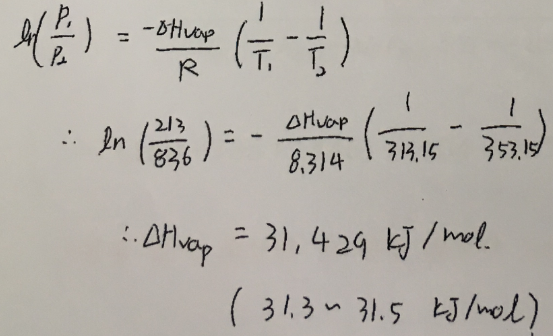 ln(P₁/P₂) = -ΔHvap/R (1/T₁ - 1/T₂)
∴ ln(213/836) = - ΔHvap/8.314 (1/313.15 - 1/353.15)
∴ ΔHvap = 31,429 kJ/mol.
(31.3 ~ 31.5 kJ/mol)